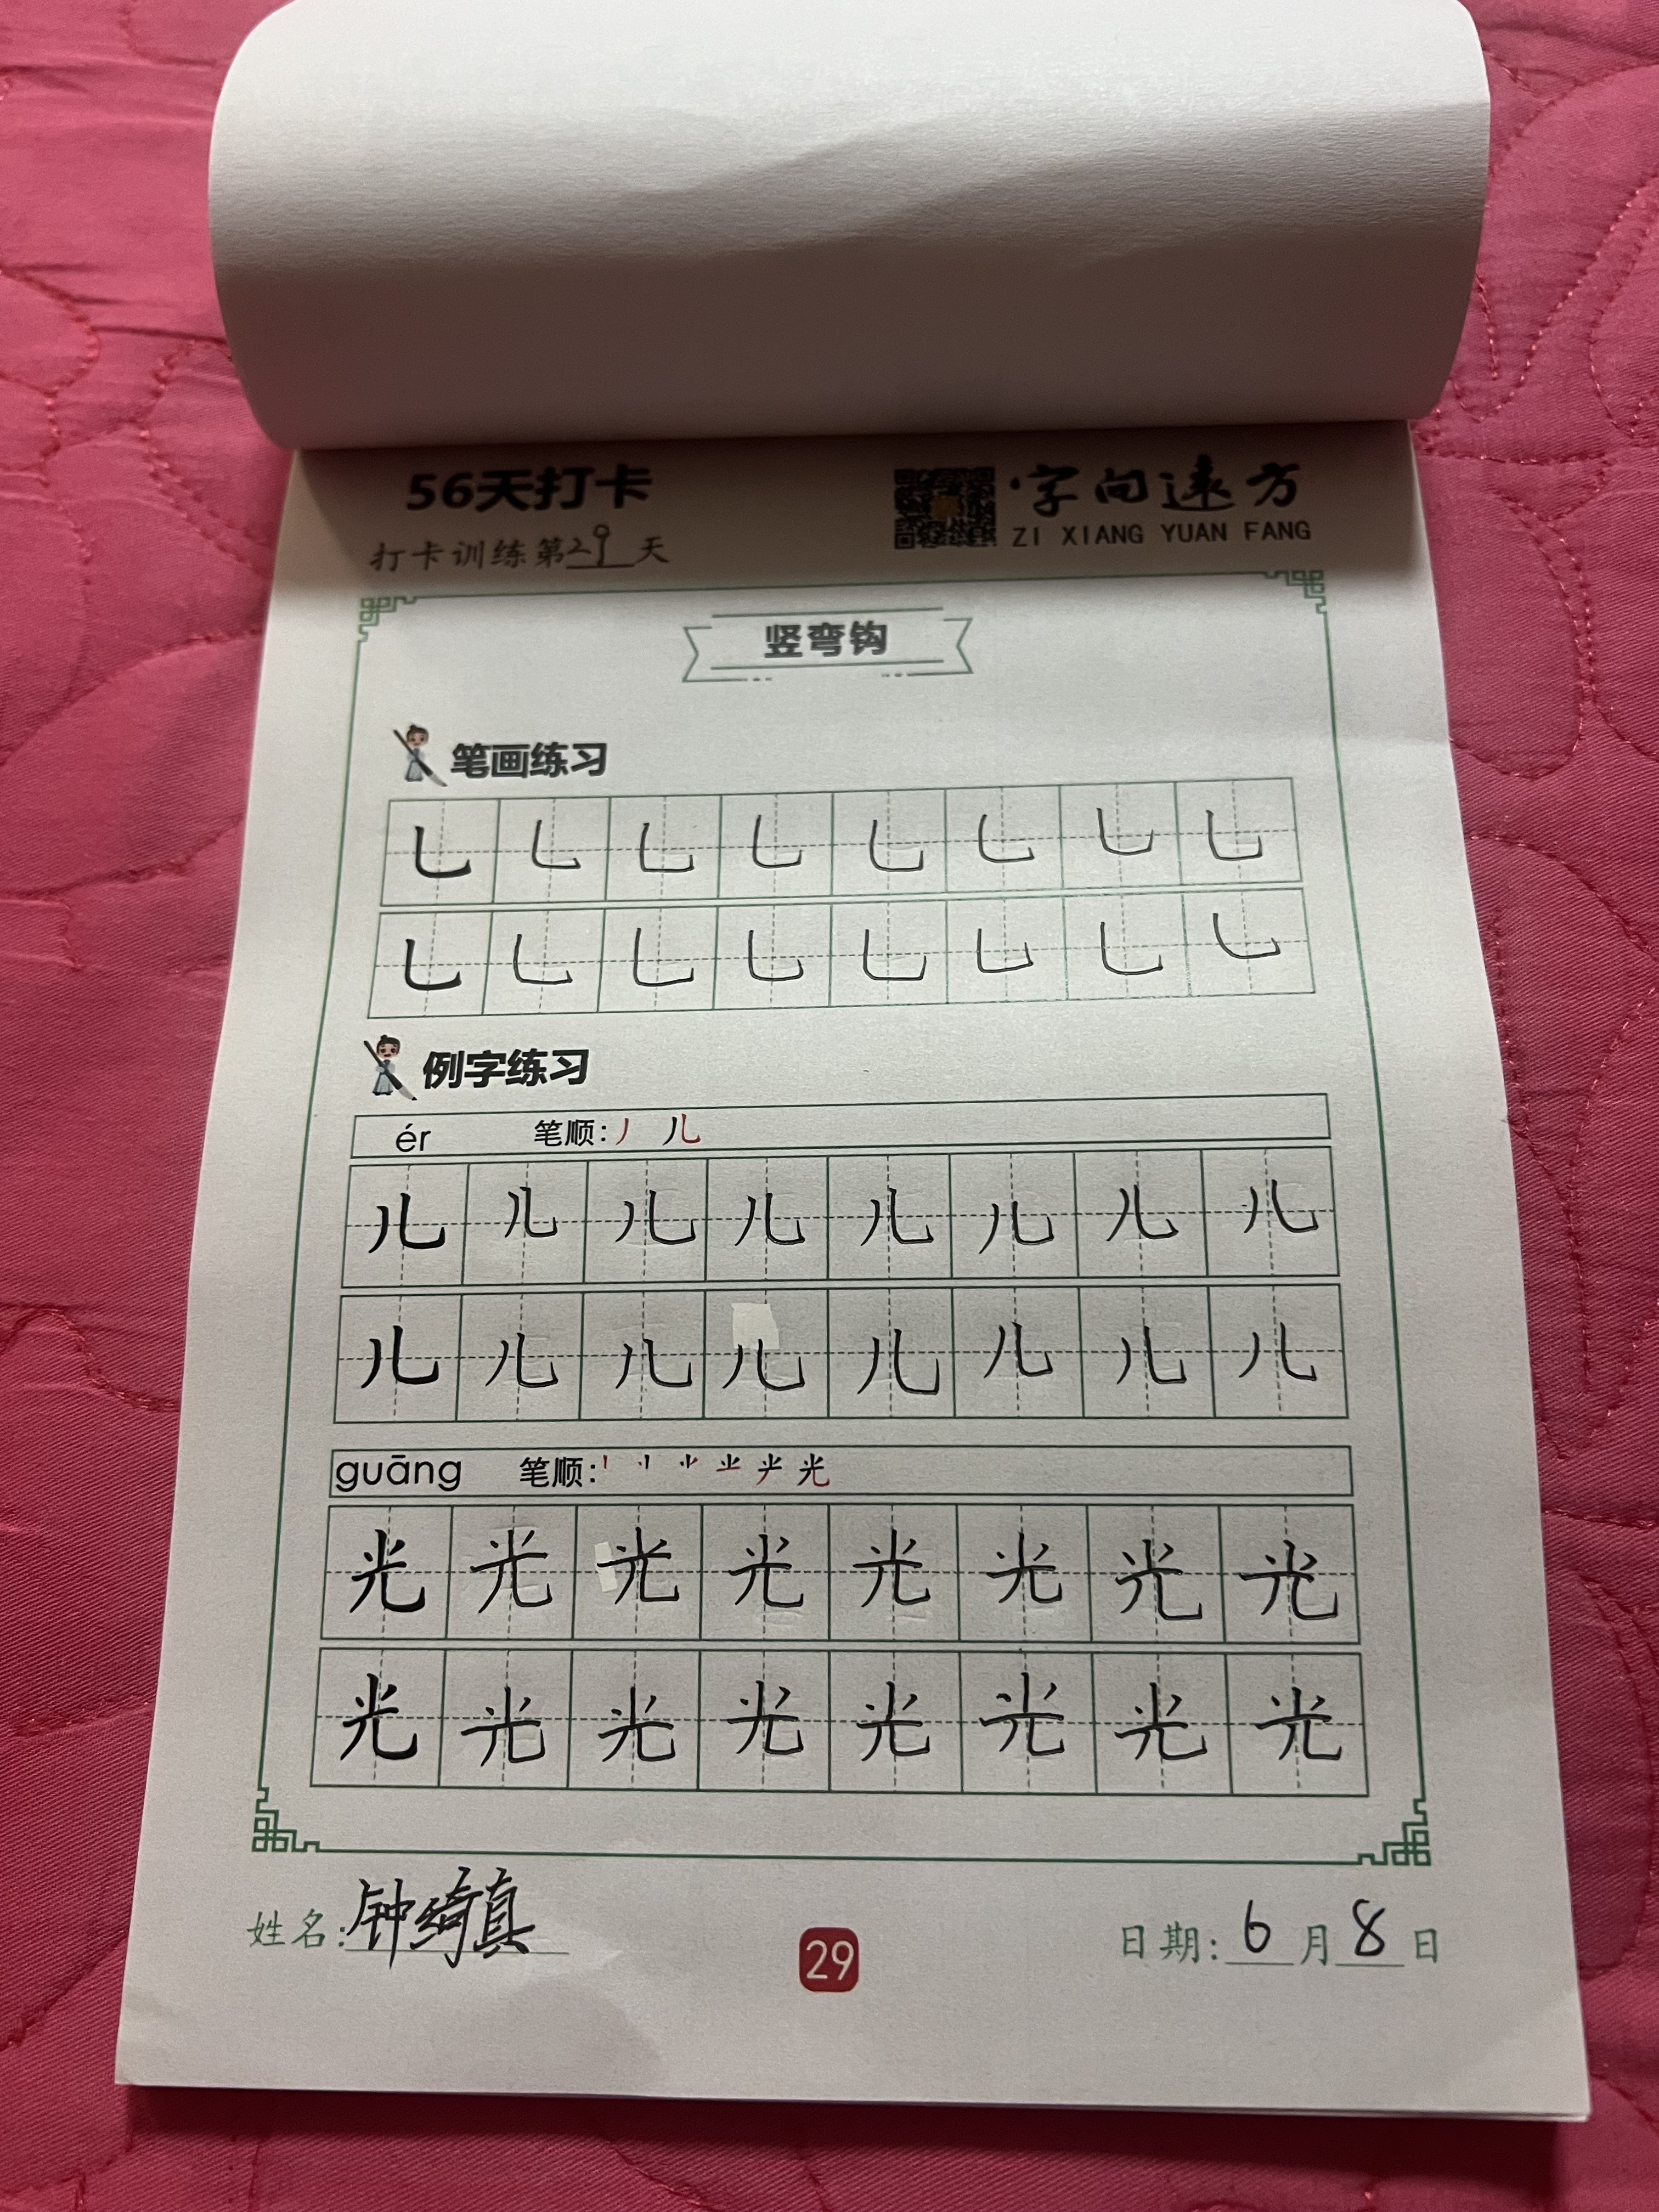 56天打卡
字向远方
ZI XIANG YUAN FANG
打卡训练第29天
竖弯钩
笔画练习
乚 乚 乚 乚 乚 乚 乚 乚
乚 乚 乚 乚 乚 乚 乚 乚
例字练习
ér 笔顺:丿 儿
儿 儿 儿 儿 儿 儿 儿 儿
儿 儿 儿 儿 儿 儿 儿 儿
guāng 笔顺:
光 光 光 光 光 光 光 光
光 光 光 光 光 光 光 光
姓名:钟绮真
29
日期:6月8日